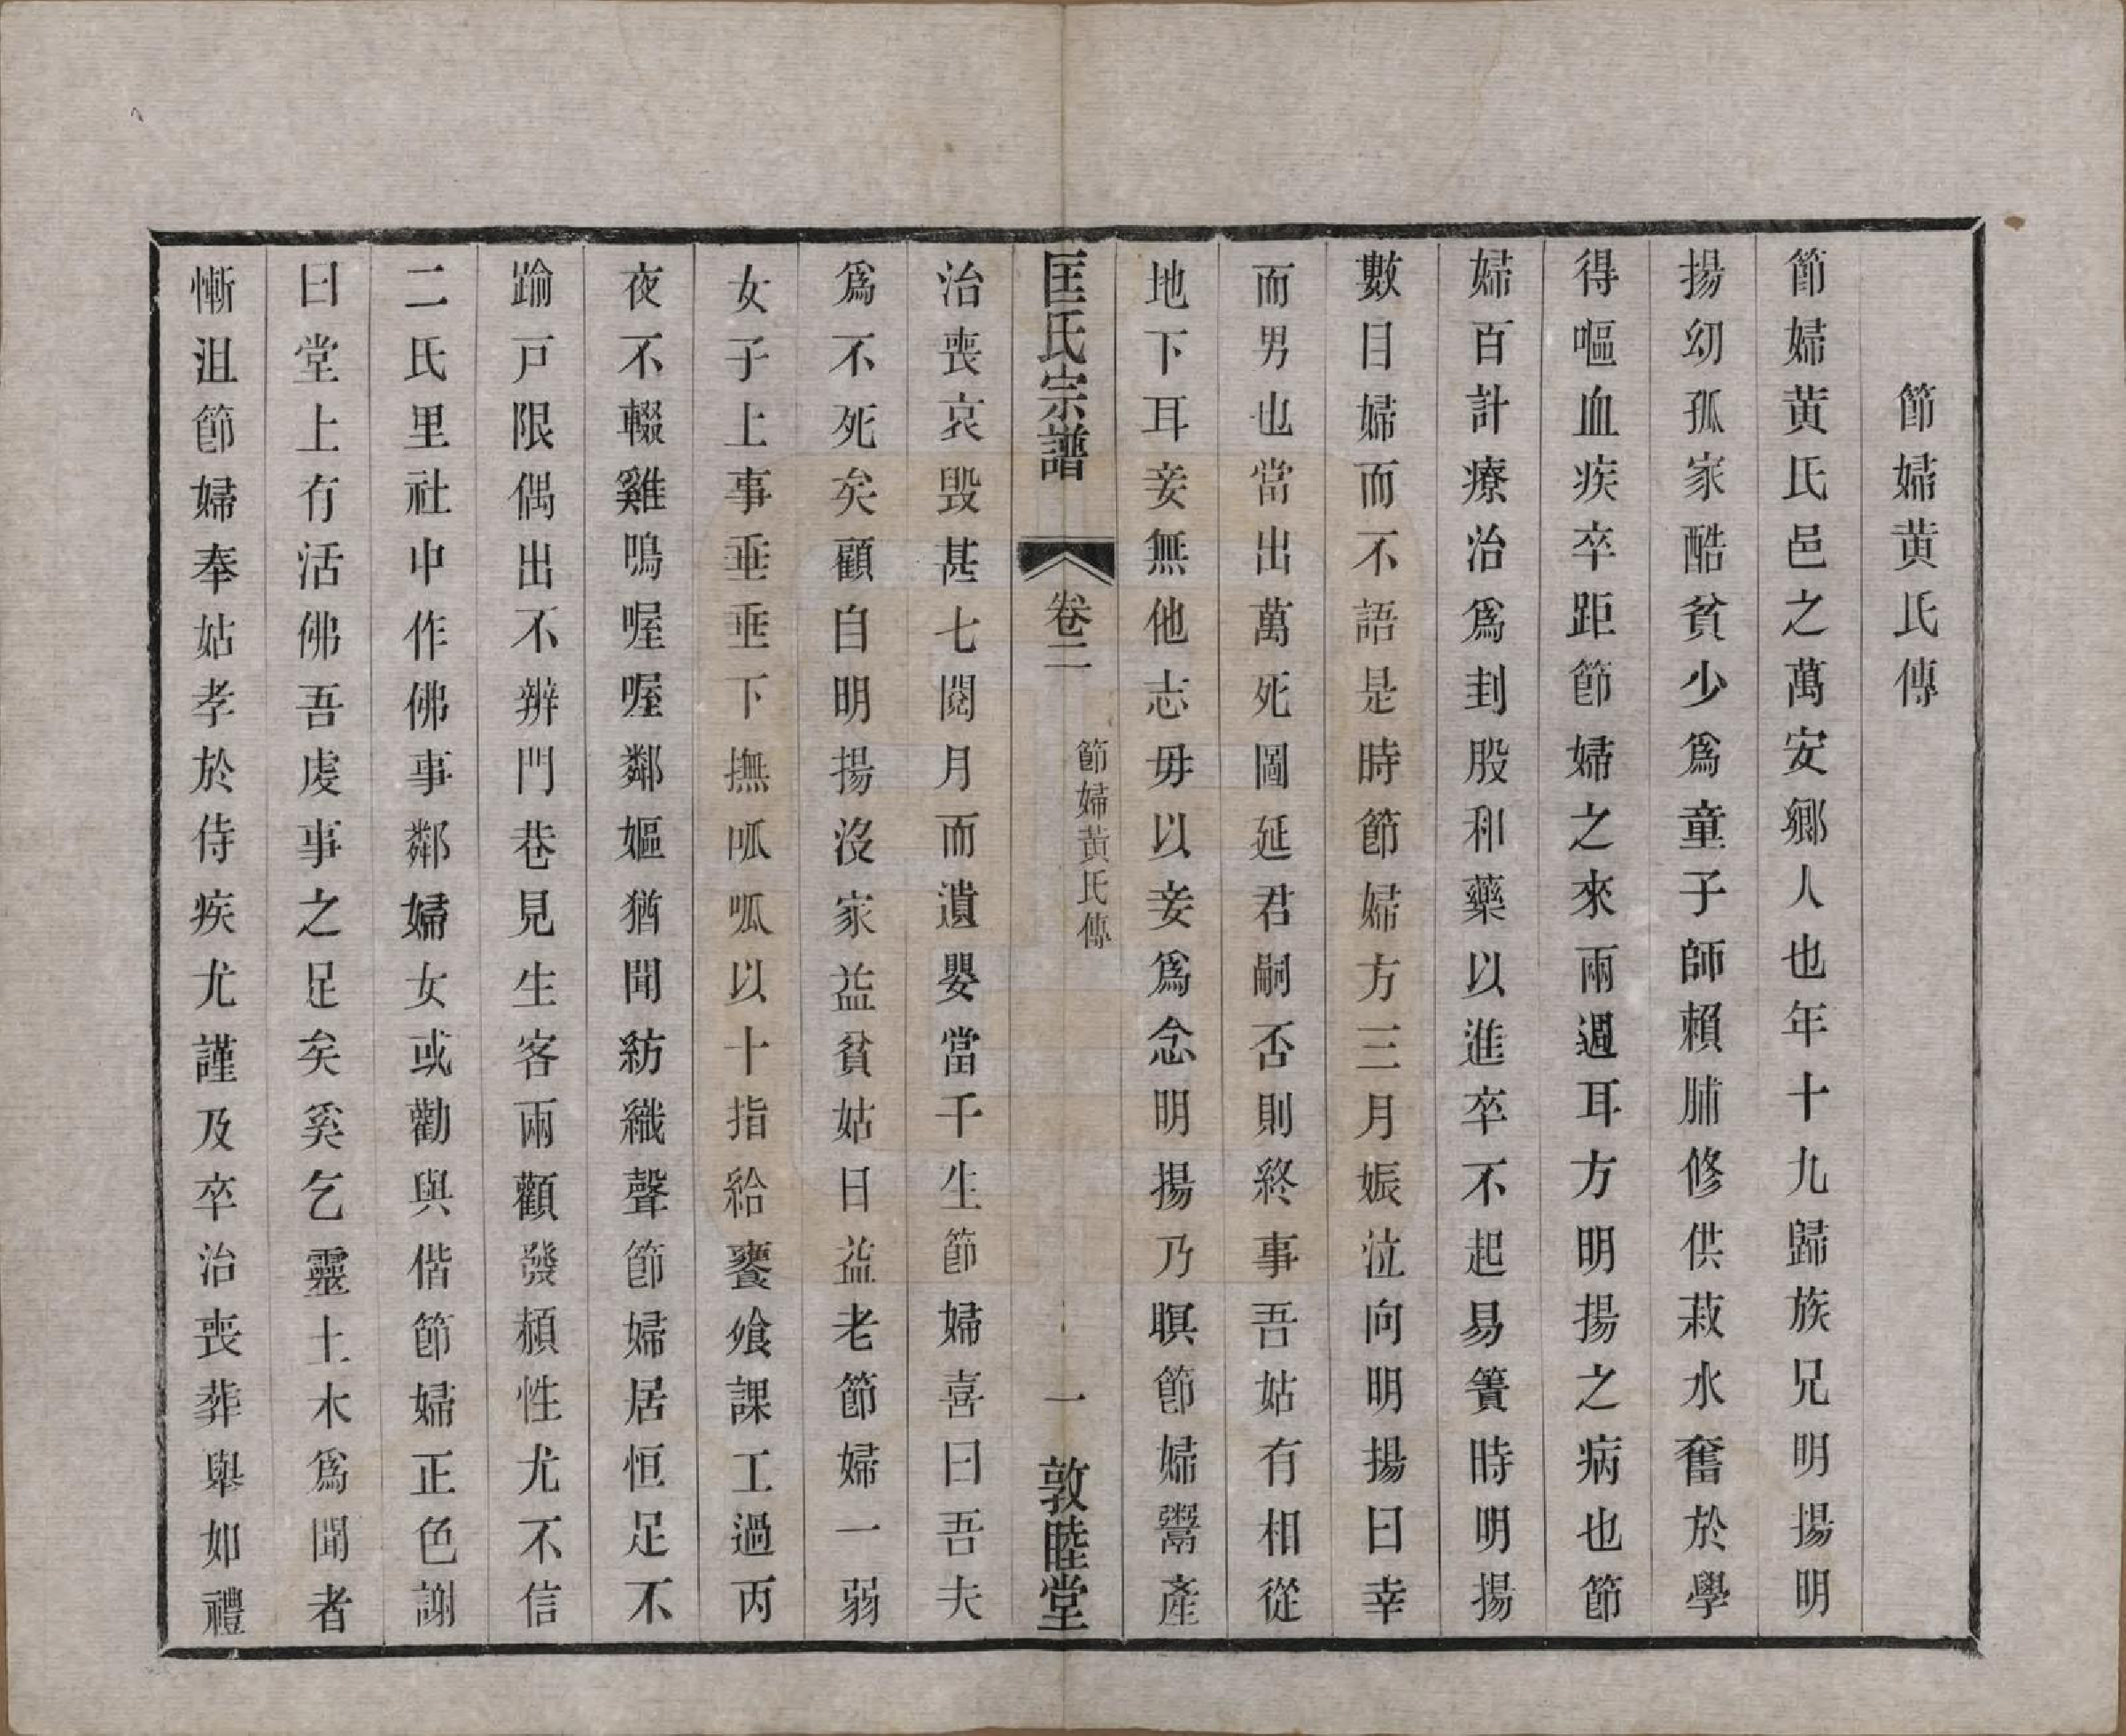 節婦黄氏傳
節婦黄氏邑之萬安鄉人也年十九歸族兄明揚明
揚幼孤家酷貧少爲童子師賴脯修供菽水奮於學
得嘔血疾卒距節婦之來兩週耳方明揚之病也節
婦百計療治爲刲股和藥以進卒不起易簀時明揚
數目婦而不語是時節婦方三月娠泣向明揚曰幸
而男也當出萬死圖延君嗣否則終事吾姑有相從
地下耳妾無他志毋以妾爲念明揚乃瞑節婦鬻產
匡氏宗譜 卷二 節婦黄氏傳 一 敦睦堂
治喪哀毀甚七閱月而遺嬰當千生節婦喜曰吾夫
爲不死矣顧自明揚沒家益貧姑日益老節婦一弱
女子上事垂垂下撫呱呱以十指給饔飧課工過丙
夜不輟雞鳴喔喔鄰嫗猶聞紡織聲節婦居恒足不
踰戸限偶出不辨門巷見生客兩顴發頳性尤不信
二氏里社中作佛事鄰婦女或勸與偕節婦正色謝
曰堂上有活佛吾虔事之足矣奚乞靈土木爲聞者
慚沮節婦奉姑孝於侍疾尤謹及卒治喪葬舉如禮